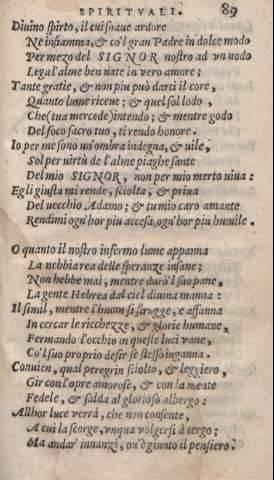 SPIRITVALI. 89
Diuino spirto, il cui soaue ardore
Ne infiamma, & co'l gran Padre in dolce modo
Per mezo del SIGNOR nostro ad vn nodo
Lega l'alme ben nate in vero amore;
Tante gratie, & non piu può darti il core,
Quanto lume riceue; & quel sol lodo,
Che (tua mercede) intendo; & mentre godo
Del foco sacro tuo, ti rendo honore.
Io per me sono un'ombra indegna, & uile,
Sol per uirtù de l'alme piaghe sante
Del mio SIGNOR, non per mio merto uiua:
Egli giusta mi rende, sciolta, & priua
Del uecchio Adamo; & tu mio caro amante
Rendimi ogn'hor piu accesa, ogn'hor piu humile.
O quanto il nostro infermo lume appanna
La nebbia rea delle speranze insane;
Non hebbe mai, mentre durò l suo pane,
La gente Hebrea dal ciel diuina manna:
Il simil, mentre l'huom si strugge, e affanna
In cercar le ricchezze, & glorie humane,
Fermando l'occhio in queste luci vane,
Co'l suo proprio desir se stesso inganna.
Conuien, qual peregrin sciolto, & leggiero,
Gir con l'opre amorose, & con la mente
Fedele, & salda al glorioso albergo:
Allhor luce verrà, che non consente,
A cui la scorge, vnqua volgersi à tergo;
Ma andar' innanzi, ou'è giunto il pensiero.